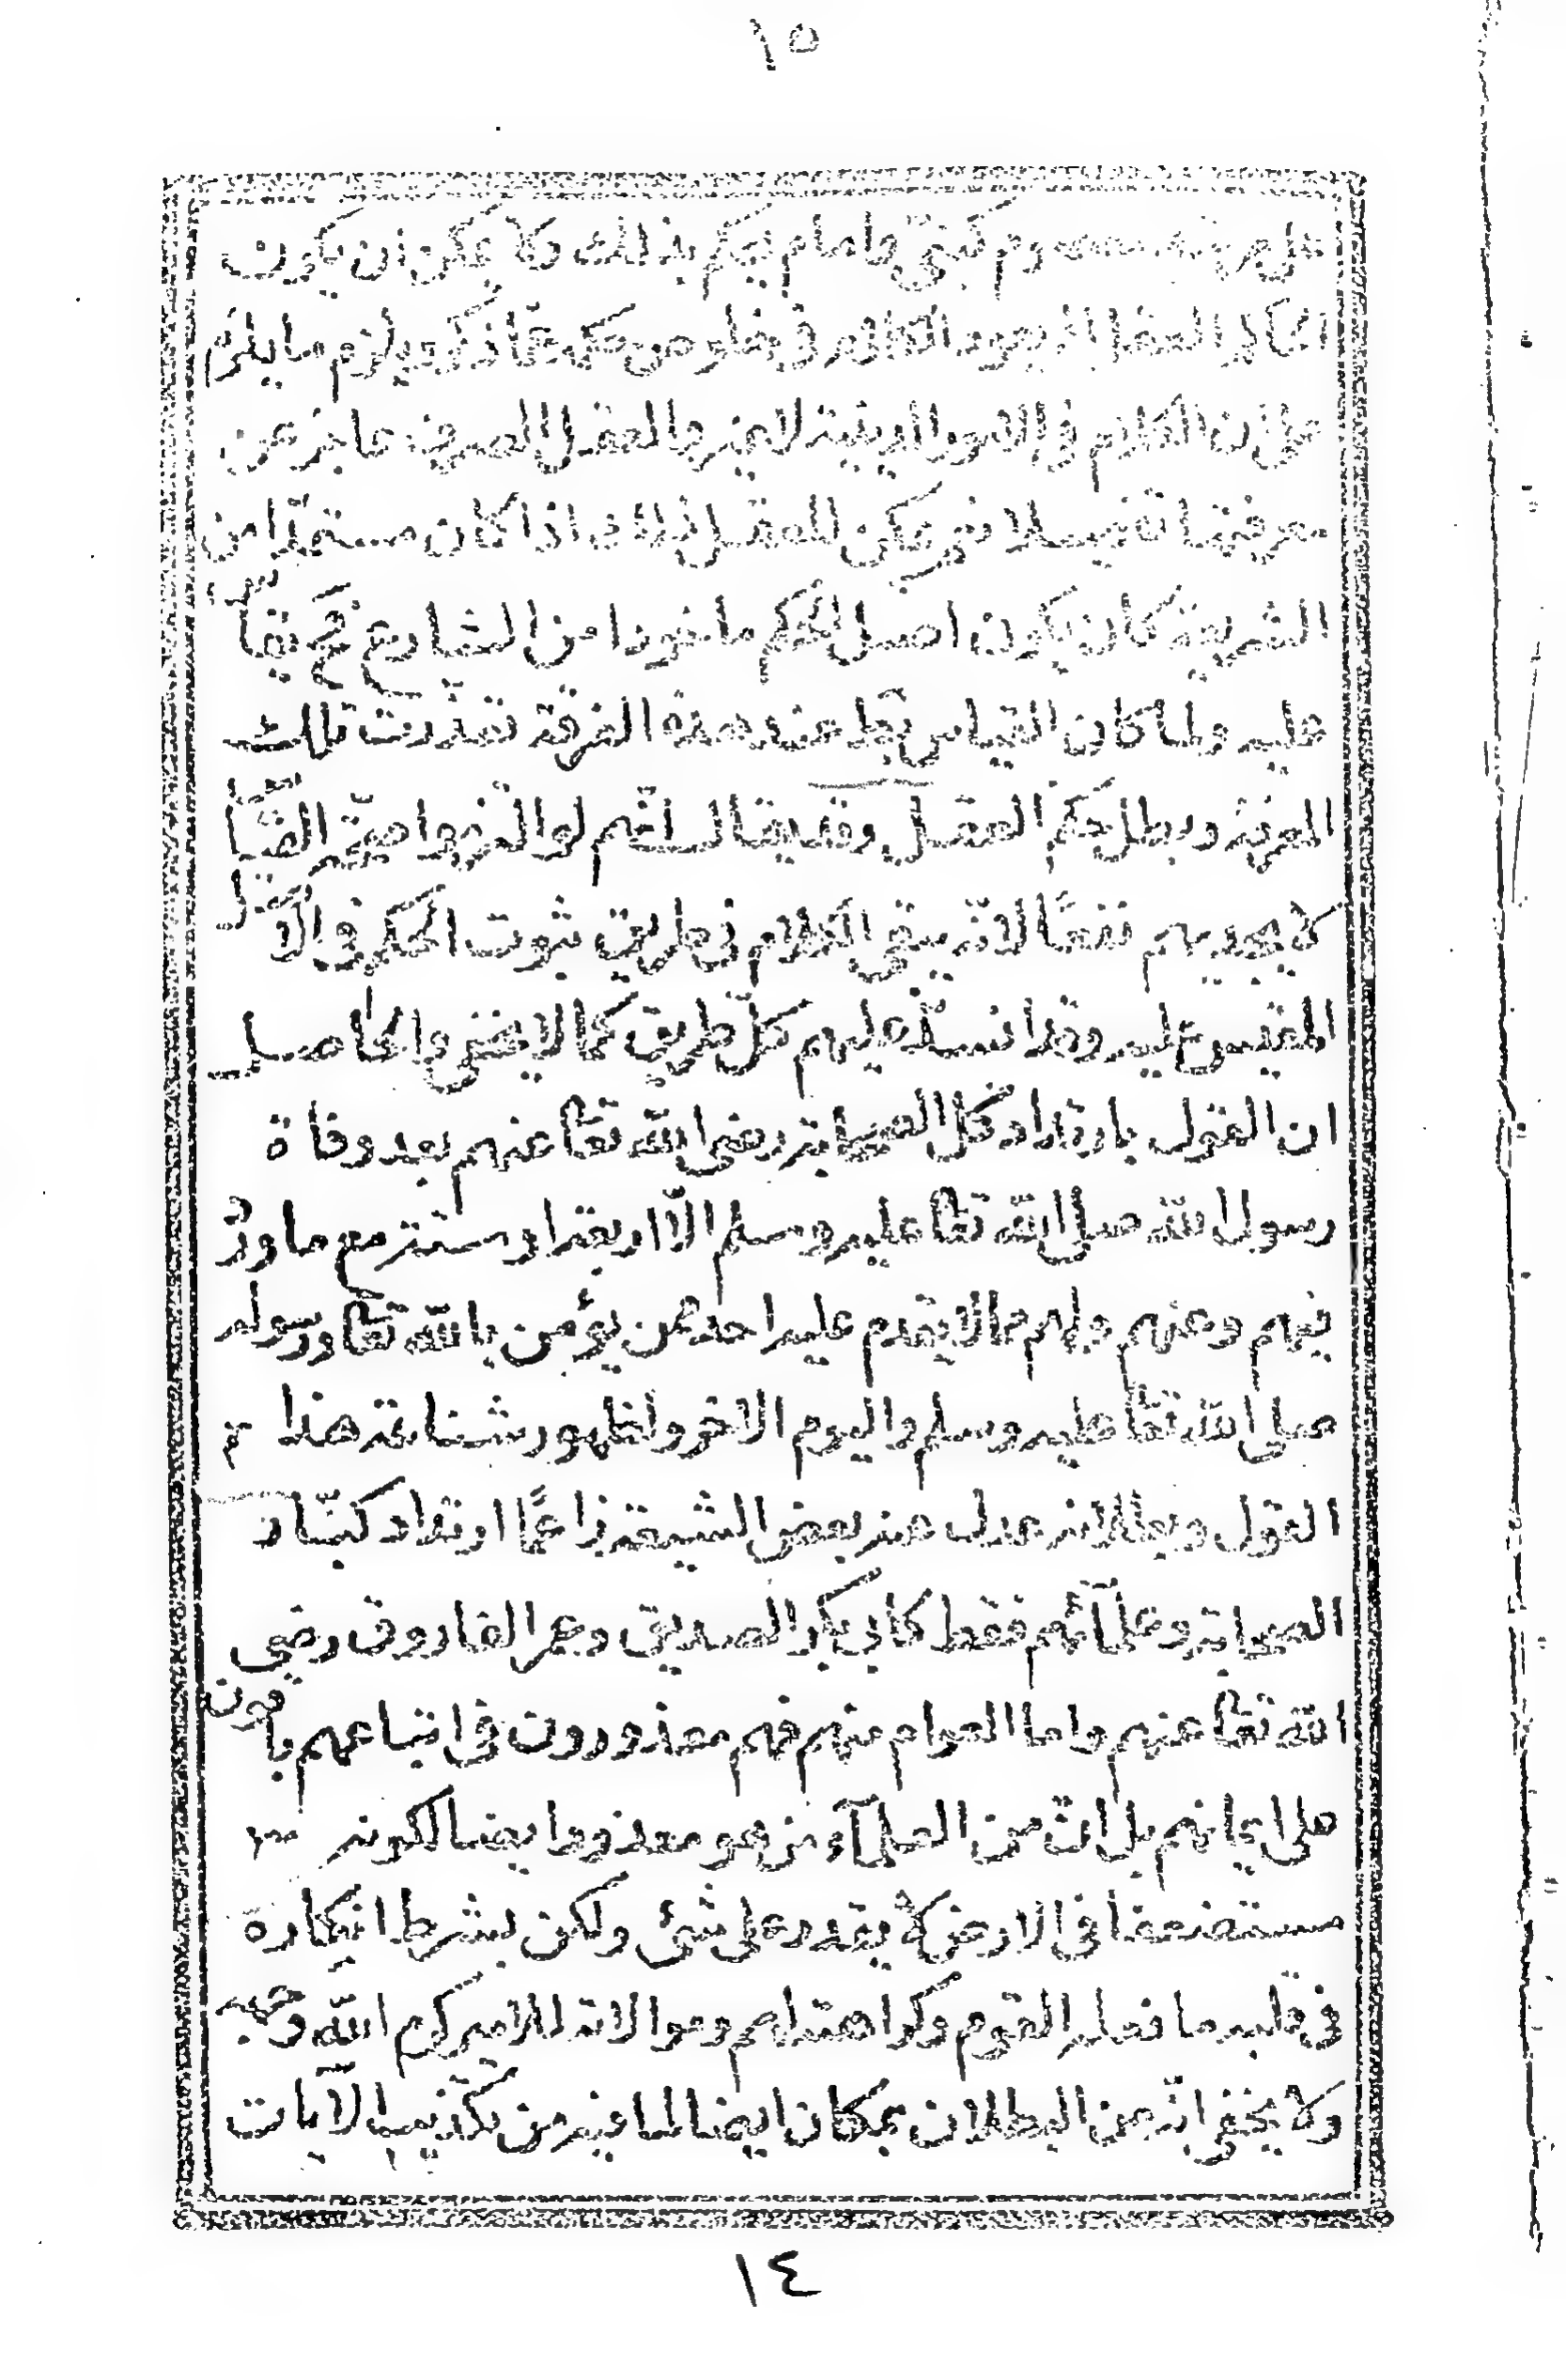 ١٥
معصوم كنبي وامام يحكم بذلك ولا يمكن ان يكون
الحاكم العقل اذ يعود الكلام ويلزم ما يلزم
على ان الكلام في الامور الدينية لا غير والعقل الصرف عاجز عن
معرفتها تفصيلا نعم يمكن للعقل ذلك اذا كان مستمدا من
الشريعة كأن يكون اصل الحكم مأخوذا من الشارع
عليه ولما كان القياس باطلا عند هذه الفرقة تعذرت تلك
المعرفة وبطل حكم العقل وقد يقال انهم لو التزموا صحة القياس
لا يجديهم نفعا لانه يبقى الكلام في طريق ثبوت الحكم في الاصل
المقيس عليه وقد انسد عليهم كل طريق كما لا يخفى والحاصل
ان القول بارتداد كل الصحابة رضى الله تعا عنهم بعد وفاة
رسول الله صلى الله تعا عليه وسلم الا اربعة او ستة مع ما ورد
فيهم وعنهم ولهم مما لا يقدم عليه احد ممن يؤمن بالله تعا ورسوله
صلى الله تعا عليه وسلم واليوم الاخر ولظهور شناعة هذا
القول وبطلانه عدل عنه بعض الشيعة زاعما ارتداد كبار
الصحابة وعلمآئهم فقط كابى بكر الصديق وعمر الفاروق رضى
الله تعا عنهم واما العوام منهم فهم معذورون فى اتباعهم باقون
على ايمانهم بل ان من العلمآء من هو معذور ايضا لكونه
مستضعفا فى الارض لا يقدر على شئ ولكن بشرط انكاره
فى قلبه ما فعله القوم وكراهته لهم وموالاته للامير كرم الله وجهه
ولا يخفى انه من البطلان بمكان ايضا لما فيه من تكذيب الآيات
١٤